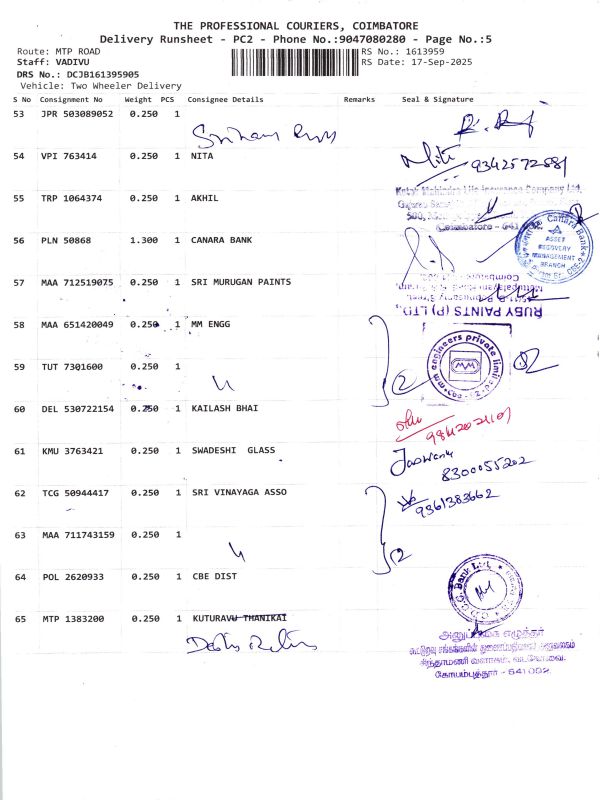 THE PROFESSIONAL COURIERS, COIMBATORE
Delivery Runsheet - PC2 - Phone No.:9047080280 - Page No.:5
Route: MTP ROAD RS No.: 1613959
Staff: VADIVU RS Date: 17-Sep-2025
DRS No.: DCJB161395905
Vehicle: Two Wheeler Delivery
S No Consignment No Weight PCS Consignee Details Remarks Seal & Signature
53 JPR 503089052 0.250 1
54 VPI 763414 0.250 1 NITA
9342572881
55 TRP 1064374 0.250 1 AKHIL
Kotak Mahindra Life Insurance Company Ltd.
Coimbatore - 641
56 PLN 50868 1.300 1 CANARA BANK
Canara Bank
ASSET
RECOVERY
MANAGEMENT
BRANCH
57 MAA 712519075 0.250 1 SRI MURUGAN PAINTS
Coimbatore
RUBY PAINTS (P) LTD.,
58 MAA 651420049 0.250 1 MM ENGG
mm engineers private limited
MM
59 TUT 7301600 0.250 1
60 DEL 530722154 0.250 1 KAILASH BHAI
61 KMU 3763421 0.250 1 SWADESHI GLASS
Jaswant
8300055202
62 TCG 50944417 0.250 1 SRI VINAYAGA ASSO
9361383662
63 MAA 711743159 0.250 1
64 POL 2620933 0.250 1 CBE DIST
65 MTP 1383200 0.250 1 KUTURAVU THANIKAI
கோயம்புத்தூர் - 641 002.